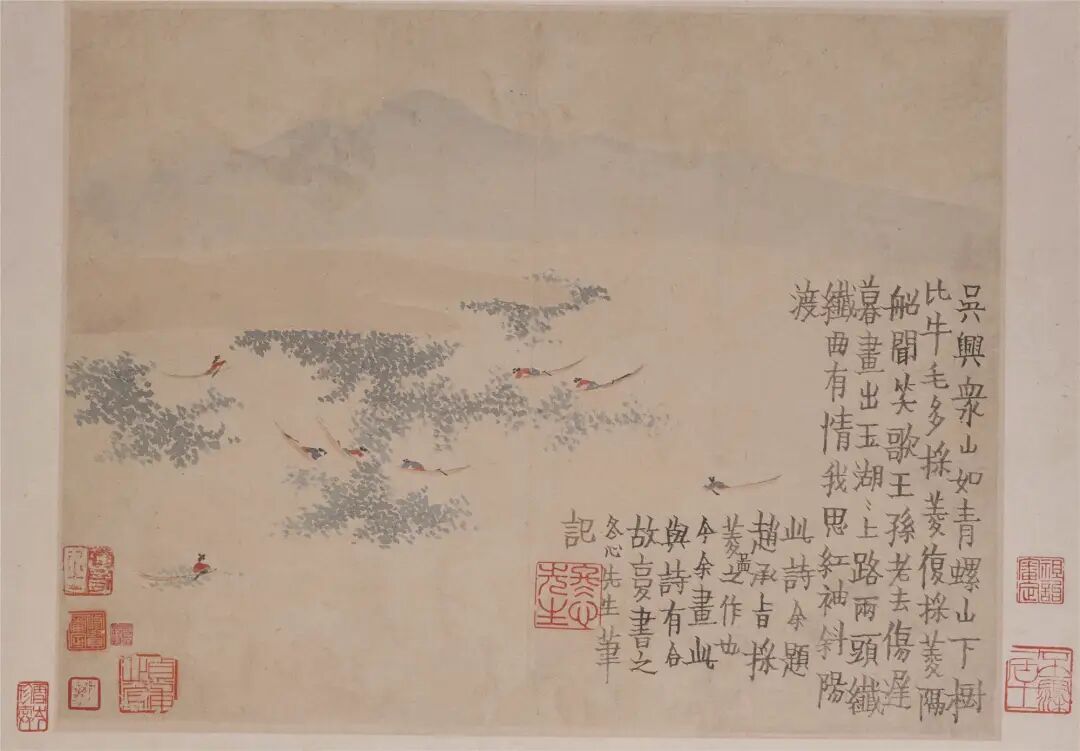 吳興衆山如青螺山下樹
比牛毛多採菱復採菱隔
船聞笑歌王孫老去傷遲
暮畫出玉湖〻上路兩頭纖
纖曲有情我思紅袖斜陽
渡
此詩余題
趙承旨採
菱之作也
今余畫此
與詩有合
故更書之
冬心先生筆
記
冬心先生